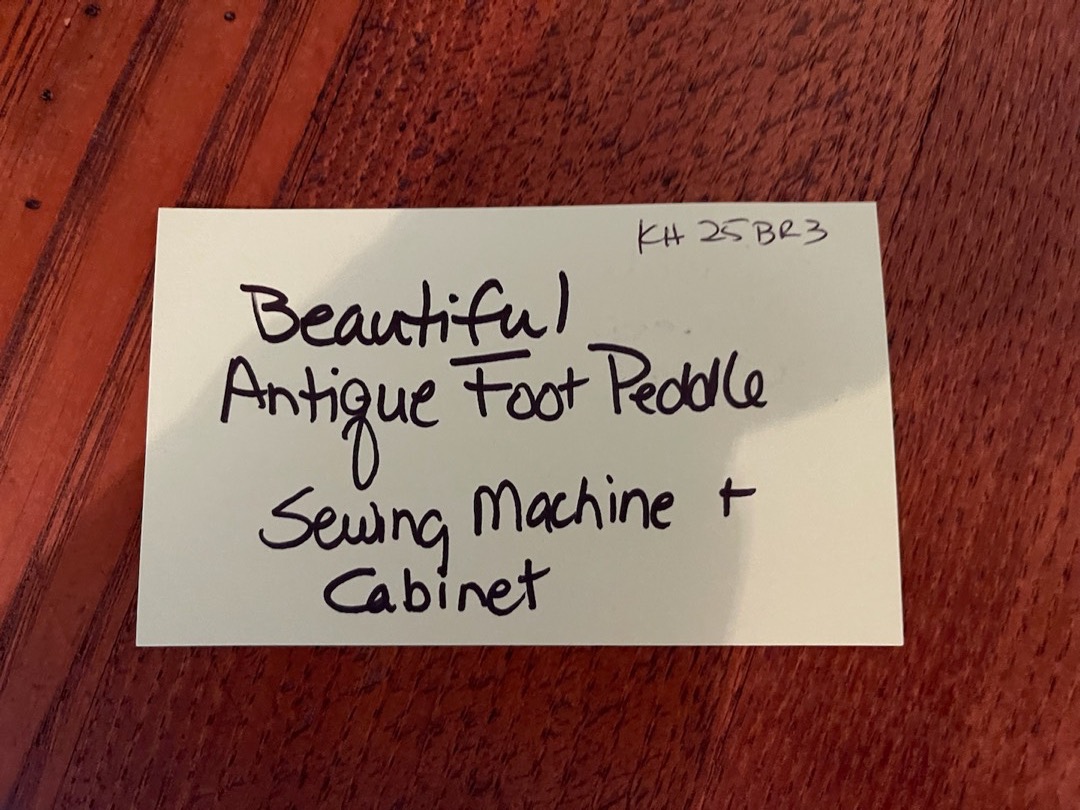 KH 25BR3
Beautiful
Antique Foot Peddle
Sewing Machine +
Cabinet